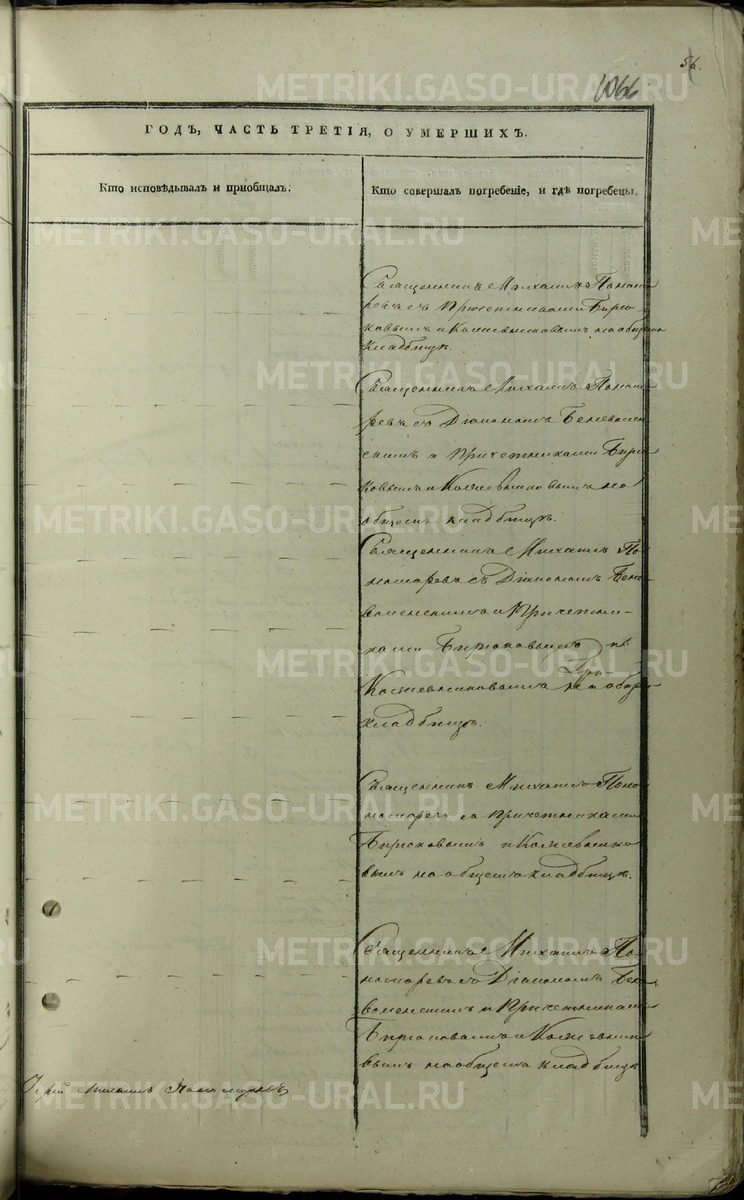 56.
1066
ГОДЪ, ЧАСТЬ ТРЕТІЯ, О УМЕРШИХЪ.
Кто исповѣдывалъ и пріобщалъ.
Кто совершалъ погребеніе, и гдѣ погребены.
Священникъ Михаилъ Понома
ревъ съ Причетниками Бирю
ковымъ и Кожевниковымъ на общемъ
кладбищѣ.
Священникъ Михаилъ Понома
ревъ съ Діакономъ Беневолен
скимъ и Причетниками Бирю
ковымъ и Кожевниковымъ на
общемъ кладбищѣ.
Священникъ Михаилъ По
номаревъ съ Діакономъ Бене
воленскимъ и Причетни-
ками Бирюковымъ и
Кожевниковымъ на общемъ
кладбищѣ.
Священникъ Михаилъ Поно
номаревъ со Причетниками
Бирюковымъ и Кожевнико
вымъ на общемъ кладбищѣ.
Священникъ Михаилъ По
номаревъ съ Діакономъ Бене
воленскимъ и Причетниками
Бирюковымъ и Кожевнико
вымъ на общемъ кладбищѣ
Іерей Михаилъ Пономаревъ
METRIKI.GASO-URAL.RU